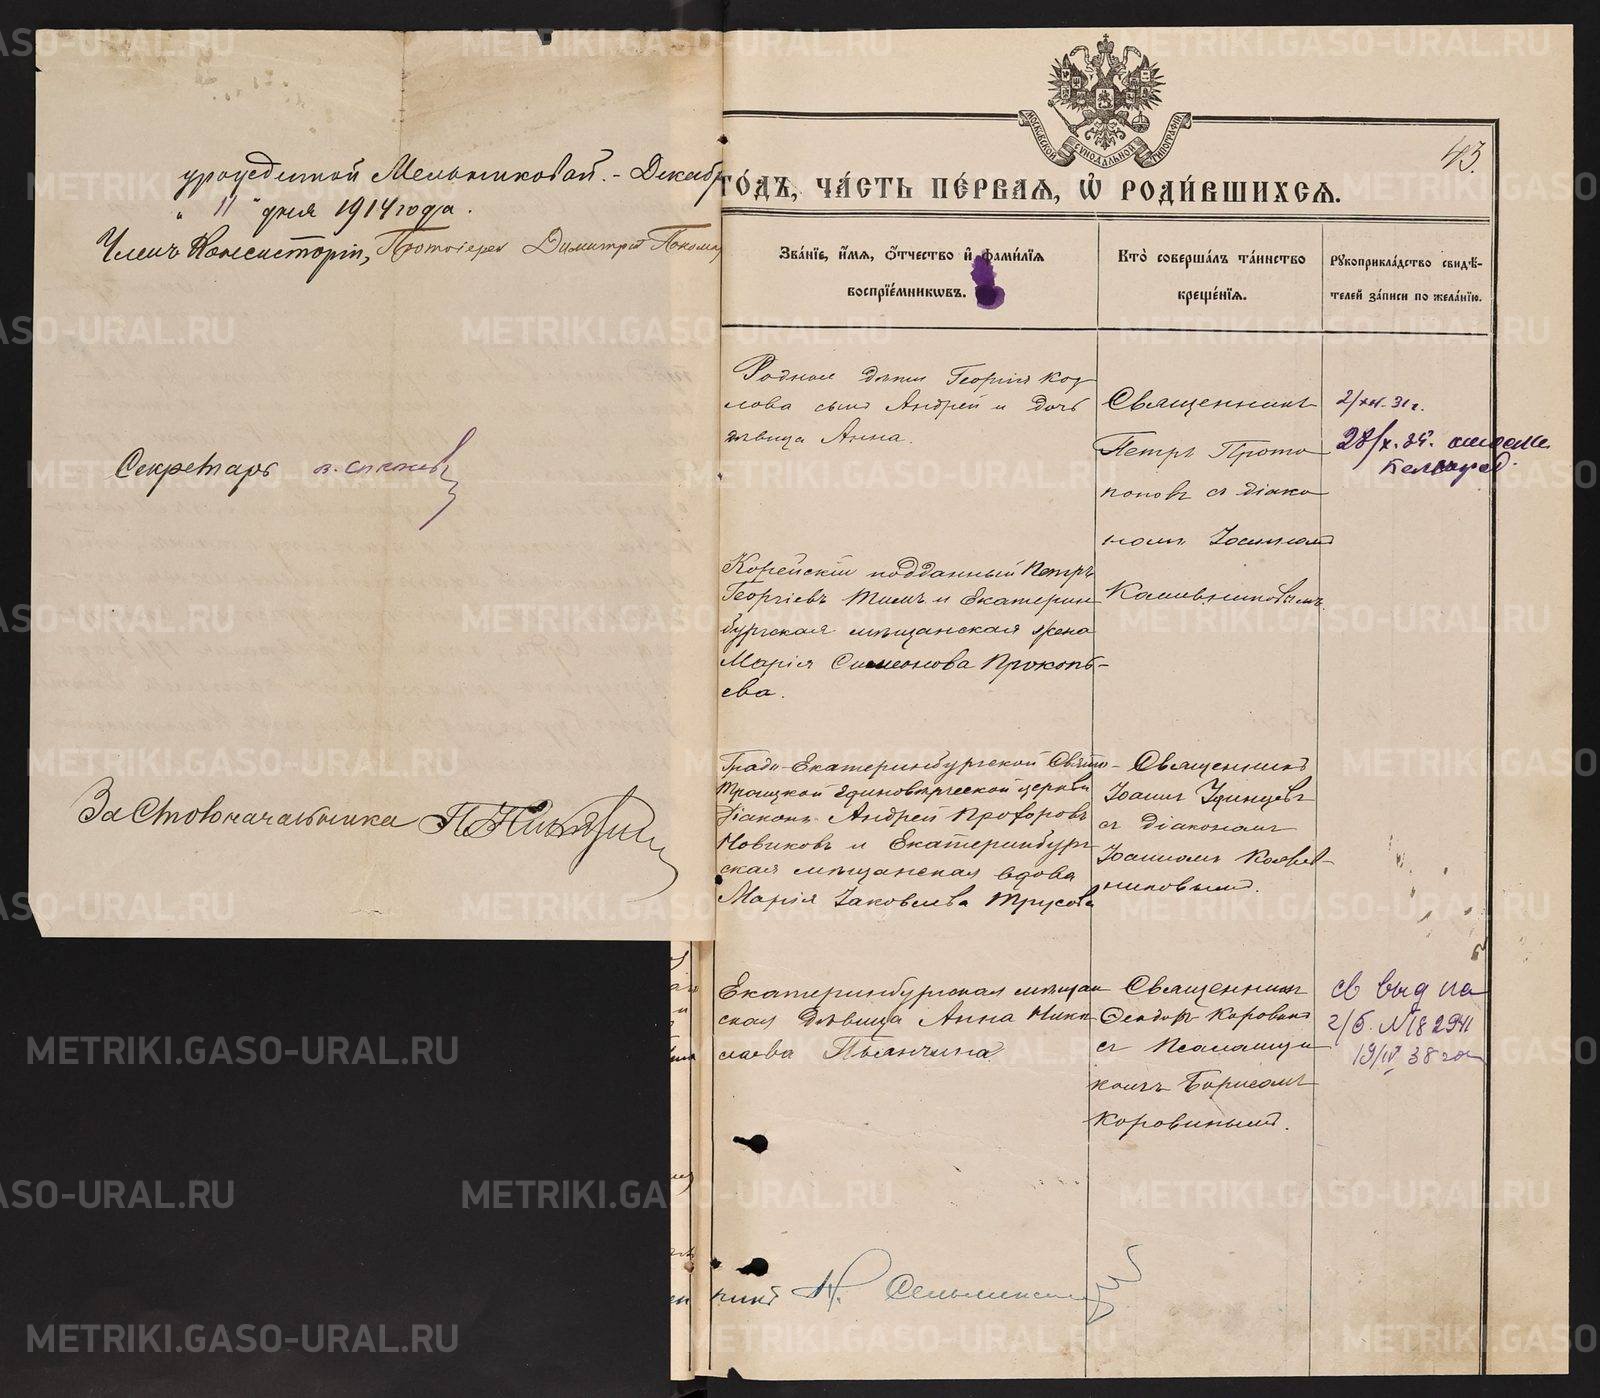 урожденной Мельниковой. - Декабр
" 11 " дня 1914 года.
Членъ Консисторіи, Протоіерей Димитрій
Секретарь
За Столоначальника
МОСКОВСКОЙ СѴНОДАЛЬНОЙ ТИПОГРАФІИ
43.
ГО́ДЪ, ЧА́СТЬ ПЕ́РВАѦ, Ѡ҆ РОДИ́ВШИХСѦ.
Зва́нїе, и҆́мѧ, ѻ҆́тчество и҆ фами́лїѧ
воспрїе́мникѡвъ.
Кто̀ соверша́лъ та́инство
креще́нїѧ.
Рꙋкоприкла́дство свидѣ́-
телей за́писи по жела́нїю.
Родные дѣти Георгія Коз
лова сынъ Андрей и дочь
дѣвица Анна.
Священникъ
Петръ Прото
поповъ съ діако
номъ Іоанномъ
2/XII. 31 г.
28/X. 35.
Корейскій подданный Петръ
Георгіевъ Тимъ и Екатерин
бургская мѣщанская жена
Марія Симеонова Прокопь-
ева.
Градо-Екатеринбургской Свято-
Троицкой Единовѣрческой церкви
Діаконъ Андрей Прохоровъ
Новиковъ и Екатеринбург
ская мѣщанская вдова
Марія Іаковлева Трусова
Священникъ
Іоаннъ Удинцевъ
съ діакономъ
Іоанномъ
никовымъ.
Екатеринбургская мѣщан
ская дѣвица Анна Нико
лаева Пьянчина
Священникъ
Ѳеодоръ Коровинъ
съ псаломщи
комъ Борисомъ
Коровинымъ.
св выд на
г/б. №182941
19/IV 38 го